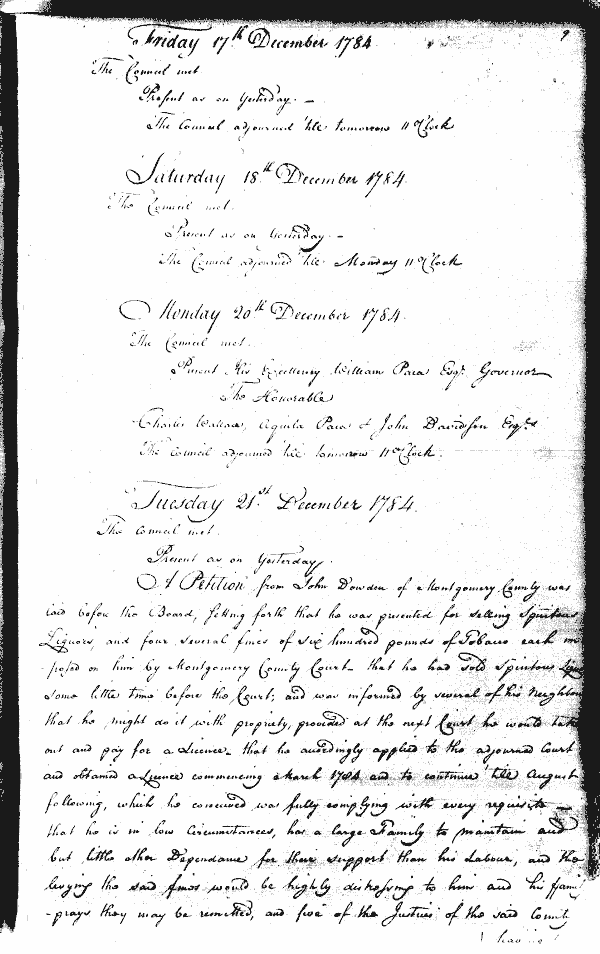 9
Friday 17th December 1784
The Council met
Present as on Yesterday. —
The Council adjourned 'till tomorrow 11 oClock
Saturday 18th December 1784.
The Council met.
Present as on Yesterday. —
The Council adjourned 'till Monday 11 oClock
Monday 20th December 1784.
The Council met.
Present His Excellency William Paca Esqr. Governor
The Honorable
Charles Wallace, Aquila Paca & John Davidson Esqrs
The Council adjourned 'till tomorrow 11 oClock.
Tuesday 21st December 1784.
The Council met.
Present as on Yesterday.
A Petition from John Dowden of Montgomery County was
laid before the Board, setting forth that he was presented for selling Spiritous
Liquors, and four several fines of six hundred pounds of Tobacco each im
posed on him by Montgomery County Court — that he had sold Spiritous Liqu
some little time before the Court; and was informed by several of his Neighbou
that he might do it with propriety, provided at the next Court he would take
out and pay for a Licence — that he accordingly applied to the adjourned Court
and obtained a Licence commencing March 1784 and to continue till August
following, which he conceived was fully complying with every requisite —
that he is in low Circumstances, has a large Family to maintain and
but little other Dependance for their support than his Labour, and the
levying the said fines would be highly distressing to him and his fami
-prays they may be remitted, and five of the Justices of the said County